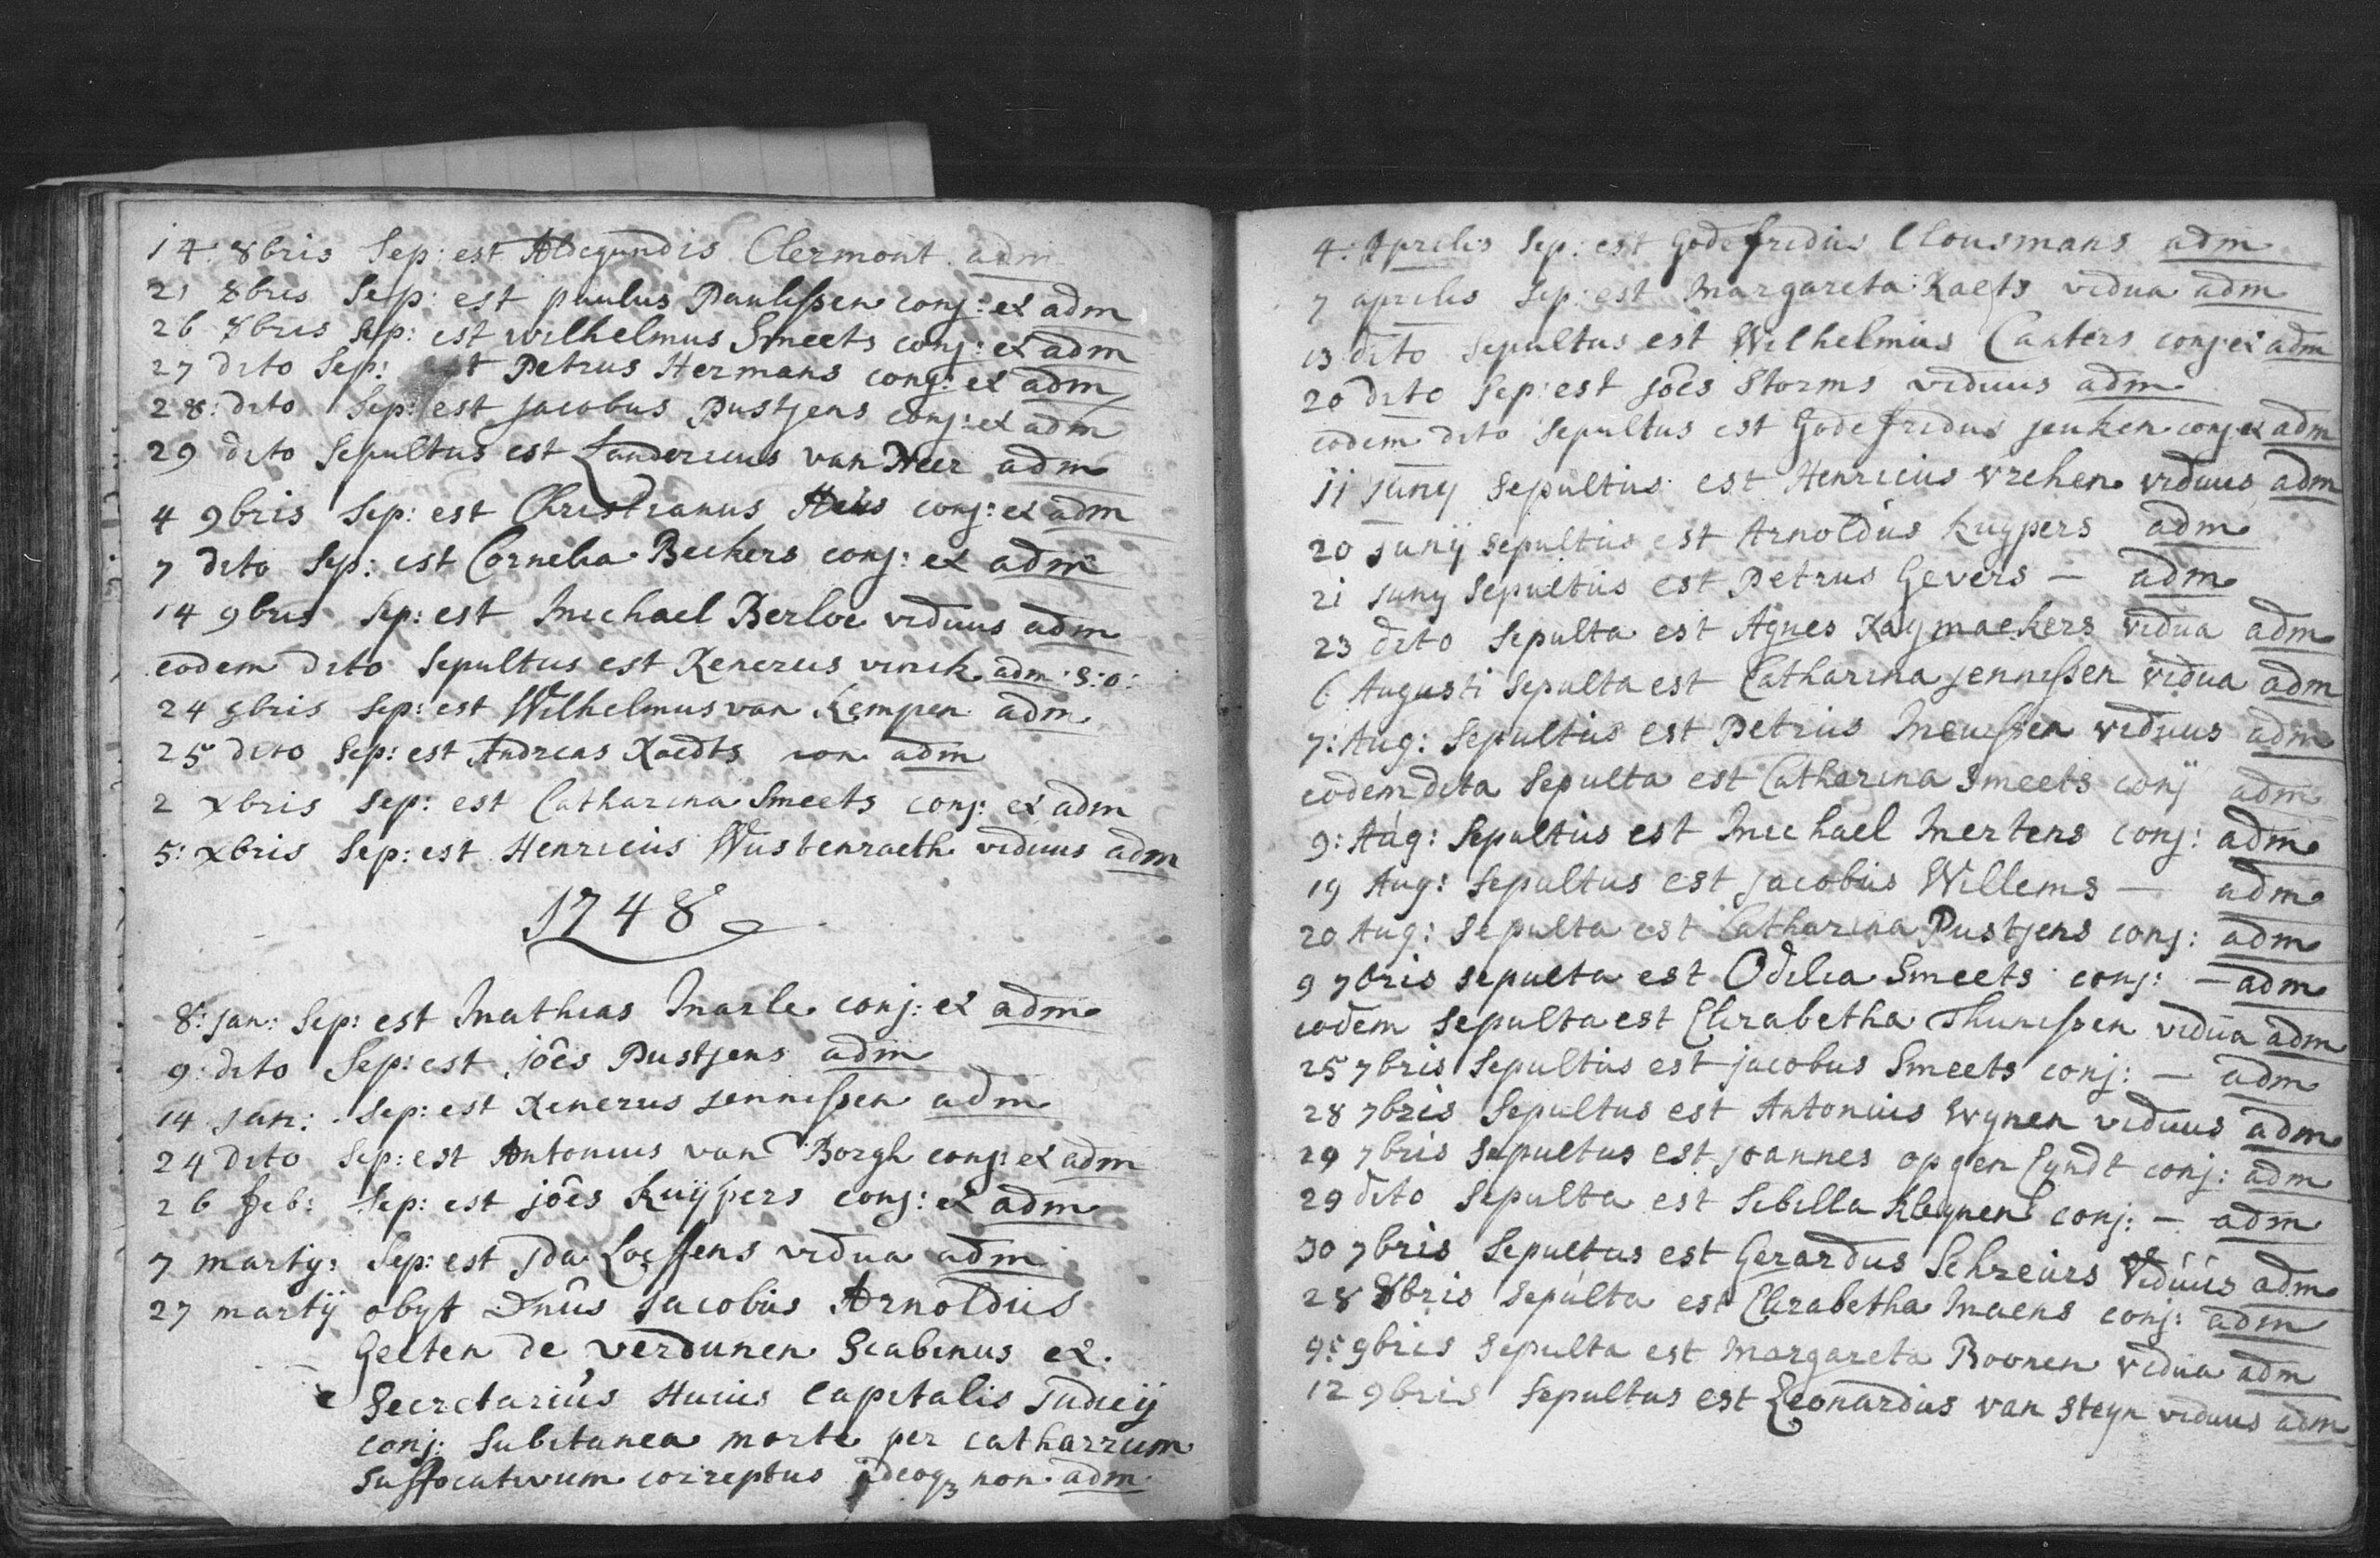 14: 8bris Sep: est Aldegundis Clermont adm
21 8bris Sep: est paulus Paulissen conj: et adm
26 8bris Sep: est wilhelmus Smeets conj: et adm
27 dito Sep: est Petrus Hermans conj: et adm
28: dito Sep: est jacobus Pustjens conj: et adm
29 dito Sepultus est Landericus van Neer adm
4 9bris Sep: est Christianus conj: et adm
7 dito Sep: est Cornelia Beckers conj: et adm
14 9bris Sep: est Michael Berloe viduus adm
eodem dito Sepultus est Renerus vinck adm: S: o:
24 9bris Sep: est Wilhelmus van Kempen adm
25 dito Sep: est Andreas Raedts non adm
2 xbris Sep: est Catharina Smeets conj: et adm
5: xbris Sep: est Henricus Wustenraeth viduus adm
1748
8: jan: Sep: est Mathias Marle conj: et adm
9: dito Sep: est joês Pustjens adm
14 jan: Sep: est Renerus jennissen adm
24 dito Sep: est Antonius van Borgh conj: et adm
26 feb: Sep: est joês Kuÿpers conj: et adm
7 martÿ: Sep: est Ida Loeffens vidua adm
27 martÿ obyt Dnûs jacobus Arnoldus
Geelen de verdunen Scabinus et
Secretarius Huius Capitalis Judicÿ
conj: Subitanea morte per catharrum
Suffocativum correptus ideoqȝ non adm
4: Aprilis Sep: est Godefridus Clousmans adm
7 aprilis Sep: est Margareta Raets vidua adm
13 dito Sepultus est Wilhelmus Canters conj: et adm
20 dito Sep: est joês Storms viduus adm
eodem dito Sepultus est Godefridus jenken conj et adm
11 junÿ Sepultus est Henricus vrehen viduus adm
20 junÿ Sepultus est Arnoldus kuypers adm
21 juny Sepultus est Petrus Gevers — adm
23 dito Sepulta est Agnes Raymaekers vidua adm
6 Augusti Sepulta est Catharina jennissen vidua adm
7: Aug: Sepultus est Petrus Meuissen viduus adm
eodem dita Sepulta est Catharina Smeets conj adm
9: Aug: Sepultus est Michael Mertens conj: adm
19 Aug: Sepultus est jacobus Willems — adm
20 Aug: Sepulta est Catharina Pustjens conj: adm
9 7bris Sepulta est Odilia Smeets conj: — adm
eodem Sepulta est Elizabetha Thunissen vidua adm
25 7bris Sepultus est jacobus Smeets conj: — adm
28 7bris Sepultus est Antonius Wynen viduus adm
29 7bris Sepultus est joannes op gen Eyndt conj: adm
29 dito Sepulta est Sibilla Kleynen conj: — adm
30 7bris Sepultus est Gerardus Schreurs viduus adm
28 8bris Sepulta est Elizabetha Maens conj: adm
9: 9bris Sepulta est Margareta Boonen vidua adm
12 9bris Sepultus est Leonardus van Steyn viduus adm